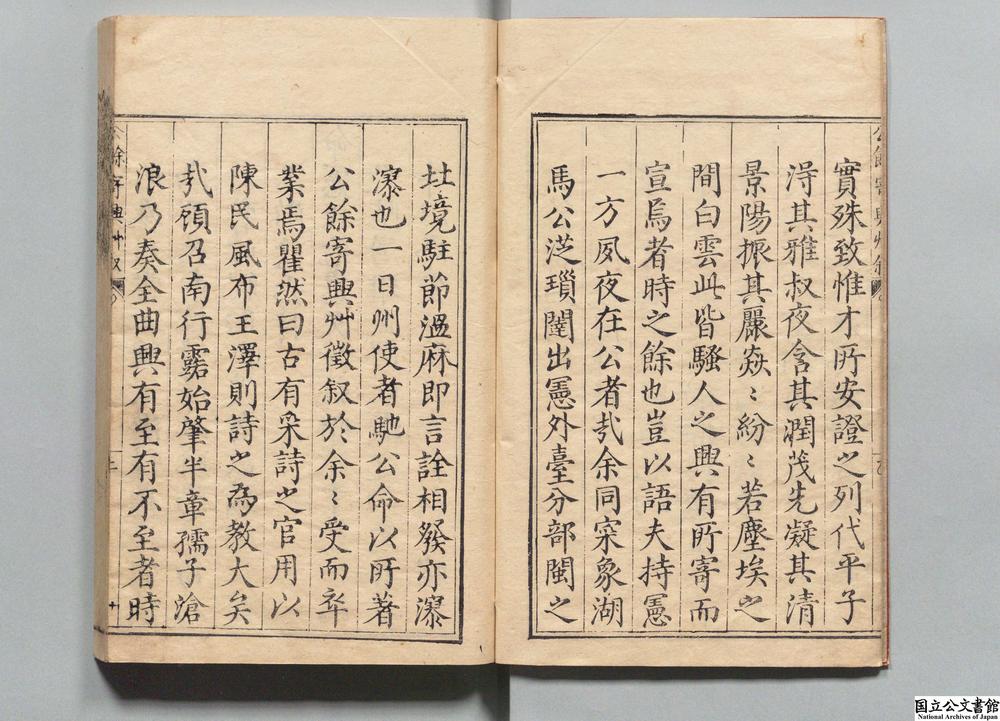 實殊致惟才所安證之列代平子
淂其雅叔夜含其潤茂先凝其清
景陽振其麗焱〻紛〻若塵埃之
間白雲此皆騷人之興有所寄而
宣焉者時之餘也豈以語夫持憲
一方夙夜在公者㢤余同寀象湖
馬公汦瓆闥出憲外臺分部閩之
圡境駐節溫麻即言詮相發亦瀑
瀑也一日州使者馳公命以所著
公餘寄興艸徵叙於余〻受而卒
業焉瞿然曰古有采詩之官用以
陳民風布王澤則詩之為教大矣
㢤頎召南行露始肇半章孺子滄
浪乃奏全曲興有至有不至者時
公餘寄興艸叙
二
国立公文書館
National Archives of Japan